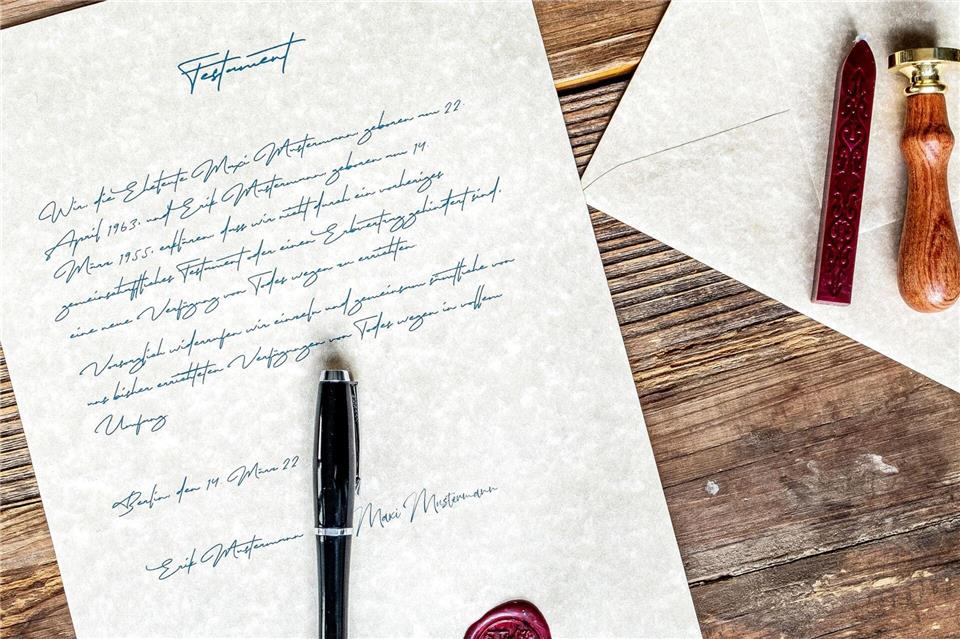 Testament
Wir, die Eheleute Maxi Mustermann, geboren am 22.
April 1963, und Erik Mustermann, geboren am 14.
März 1955, erklären, dass wir nicht durch ein vorheriges
gemeinschaftliches Testament oder einen Erbvertrag gehindert sind,
eine neue Verfügung von Todes wegen zu errichten.
Vorsorglich widerrufen wir einzeln und gemeinsam sämtliche von
uns bisher errichteten Verfügungen von Todes wegen in vollem
Umfang.
Berlin, den 14. März 22
Erik Mustermann Maxi Mustermann